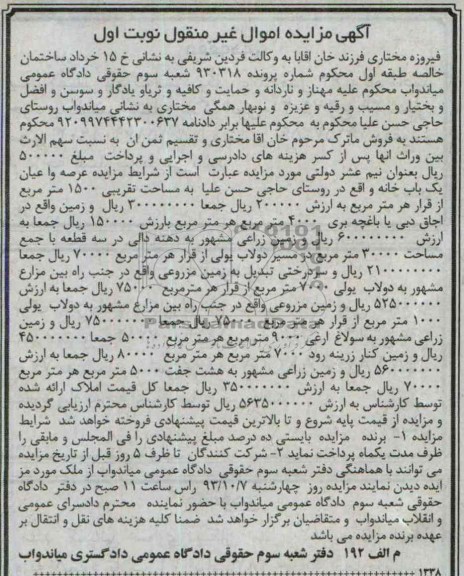 آگهی مزایده اموال غیر منقول نوبت اول
فیروزه مختاری فرزند خان اقابا به وکالت فردین شریفی به نشانی خ ۱۵ خرداد ساختمان
خالصه طبقه اول محکوم شماره پرونده ۹۳۰۳۱۸ شعبه سوم حقوقی دادگاه عمومی
میاندواب محکوم علیه مهناز و ناردانه و حمایت و کافیه و ثریاو یادگار و سوسن و افضل
و بختیار و مسیب و رقیه و عزیزه و نوبهار همگی مختاری به نشانی میاندواب روستای
حاجی حسن علیا محکوم به محکوم علیها برابر دادنامه ۹۲۰۹۹۷۴۴۴۲۳۰۰۶۳۷ محکوم
هستند به فروش ماترک مرحوم خان اقا مختاری و تقسیم ثمن ان به نسبت سهم الارث
بین وراث انها پس از کسر هزینه های دادرسی و اجرایی و پرداخت مبلغ ۵۰۰۰۰۰
ریال بعنوان نیم عشر دولتی مورد مزایده عبارت است از شرایط مزایده عرصه وا عیان
یک باب خانه و اقع در روستای حاجی حسن علیا به مساحت تقریبی ۱۵۰۰ متر مربع
از قرار هر متر مربع به ارزش ۲۰۰۰۰۰ ریال جمعا ۳۰۰۰۰۰۰۰۰ ریال و زمین واقع در
اجاق دبی یا باغچه بری ۴۰۰۰ متر مربع هر متر مربع بارزش ۱۵۰۰۰۰ ریال جمعا به
ارزش ۶۰۰۰۰۰۰۰۰ ریال و زمین زراعی مشهور به دهنه دالی در سه قطعه با جمع
مساحت ۳۰۰۰۰ متر مربع در مسیر دولاب یولی از قرار هر متر مربع ۷۰۰۰۰ ریال جمعا
۲۱۰۰۰۰۰۰۰۰ ریال و سردرختی تبدیل به زمین مزروعی واقع در جنب راه بین مزارع
مشهور به دولاب یولی ۷۰۰۰ متر مربع از قرار هر متر مربع ۷۵۰۰۰ ریال جمعا به ارزش
۵۲۵۰۰۰۰۰۰ ریال و زمین مزروعی واقع در جنب راه بین مزارع مشهور به دولاب یولی
۱۰۰۰۰ متر مربع از قرار هر متر مربع ۷۵۰۰۰ ریال جمعا ۷۵۰۰۰۰۰۰۰ ریال و زمین
زراعی مشهور به سولاغ ارغی ۹۰۰۰ متر مربع هر متر مربع ۵۰۰۰۰ جمعا ۴۵۰۰۰۰۰۰۰
ریال و زمین کنار زرینه رود ۷۰۰۰ متر مربع هر متر مربع ۸۰۰۰۰ ریال جمعا به ارزش
۵۶۰۰۰۰۰۰۰ ریال و زمین زراعی مشهور به هشت جفت ۵۰۰۰ متر مربع هر متر مربع
۷۰۰۰۰ ریال جمعا به ارزش ۳۵۰۰۰۰۰۰۰ ریال جمعا کل قیمت املاک ارائه شده
توسط کارشناس به ارزش ۵۶۳۵۰۰۰۰۰۰ ریال توسط کارشناس محترم ارزیابی گردیده
و مزایده از قیمت پایه شروع و تا بالاترین قیمت پیشنهادی فروخته خواهد شد شرایط
مزایده ۱- برنده مزایده بایستی ده درصد مبلغ پیشنهادی را فی المجلس و مابقی را
ظرف مدت یکماه پرداخت نماید ۲- شرکت کنندگان تا ظرف ۵ روز قبل از تاریخ مزایده
می توانند با هماهنگی دفتر شعبه سوم حقوقی دادگاه عمومی میاندواب از ملک مورد مز
ایده دیدن نمایند مزایده روز چهارشنبه ۹۳/۱۰/۷ راس ساعت ۱۱ صبح در دفتر دادگاه
حقوقی شعبه سوم دادگاه عمومی میاندواب با حضور نماینده محترم دادسرای عمومی
و انقلاب میاندواب و متقاضیان برگزار خواهد شد ضمنا کلیه هزینه های نقل و انتقال بر
عهده برنده مزایده می باشد
م الف ۱۹۲ دفتر شعبه سوم حقوقی دادگاه عمومی دادگستری میاندواب
۱۳۳۸